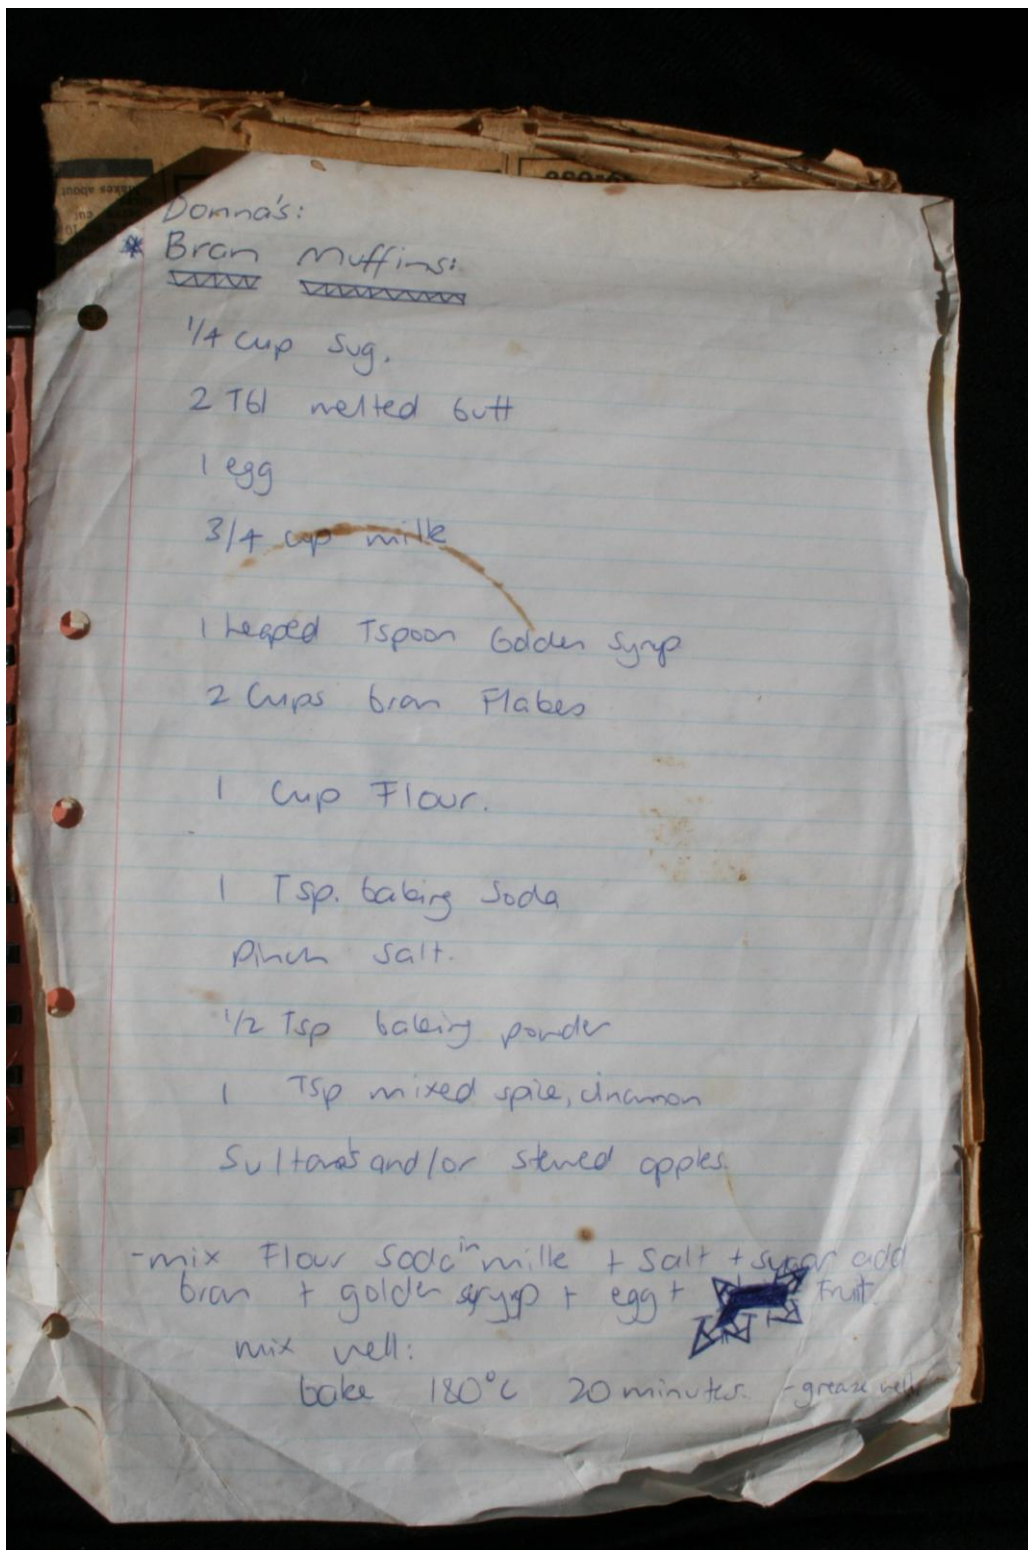 Donna's:
* Bran Muffins:
1/4 cup Sug.
2 Tbl melted butt
1 egg
3/4 cup milk
1 heaped Tspoon Golden Syrup
2 Cups bran Flakes
1 Cup Flour.
1 Tsp. baking Soda
Pinch Salt.
1/2 Tsp baking powder
1 Tsp mixed spice, cinamon
Sultana's and/or stewed apples
-mix Flour Soda in milk + Salt + sugar add
bran + golden syrup + egg + Fruit.
mix well:
bake 180°C 20 minutes. - grease well